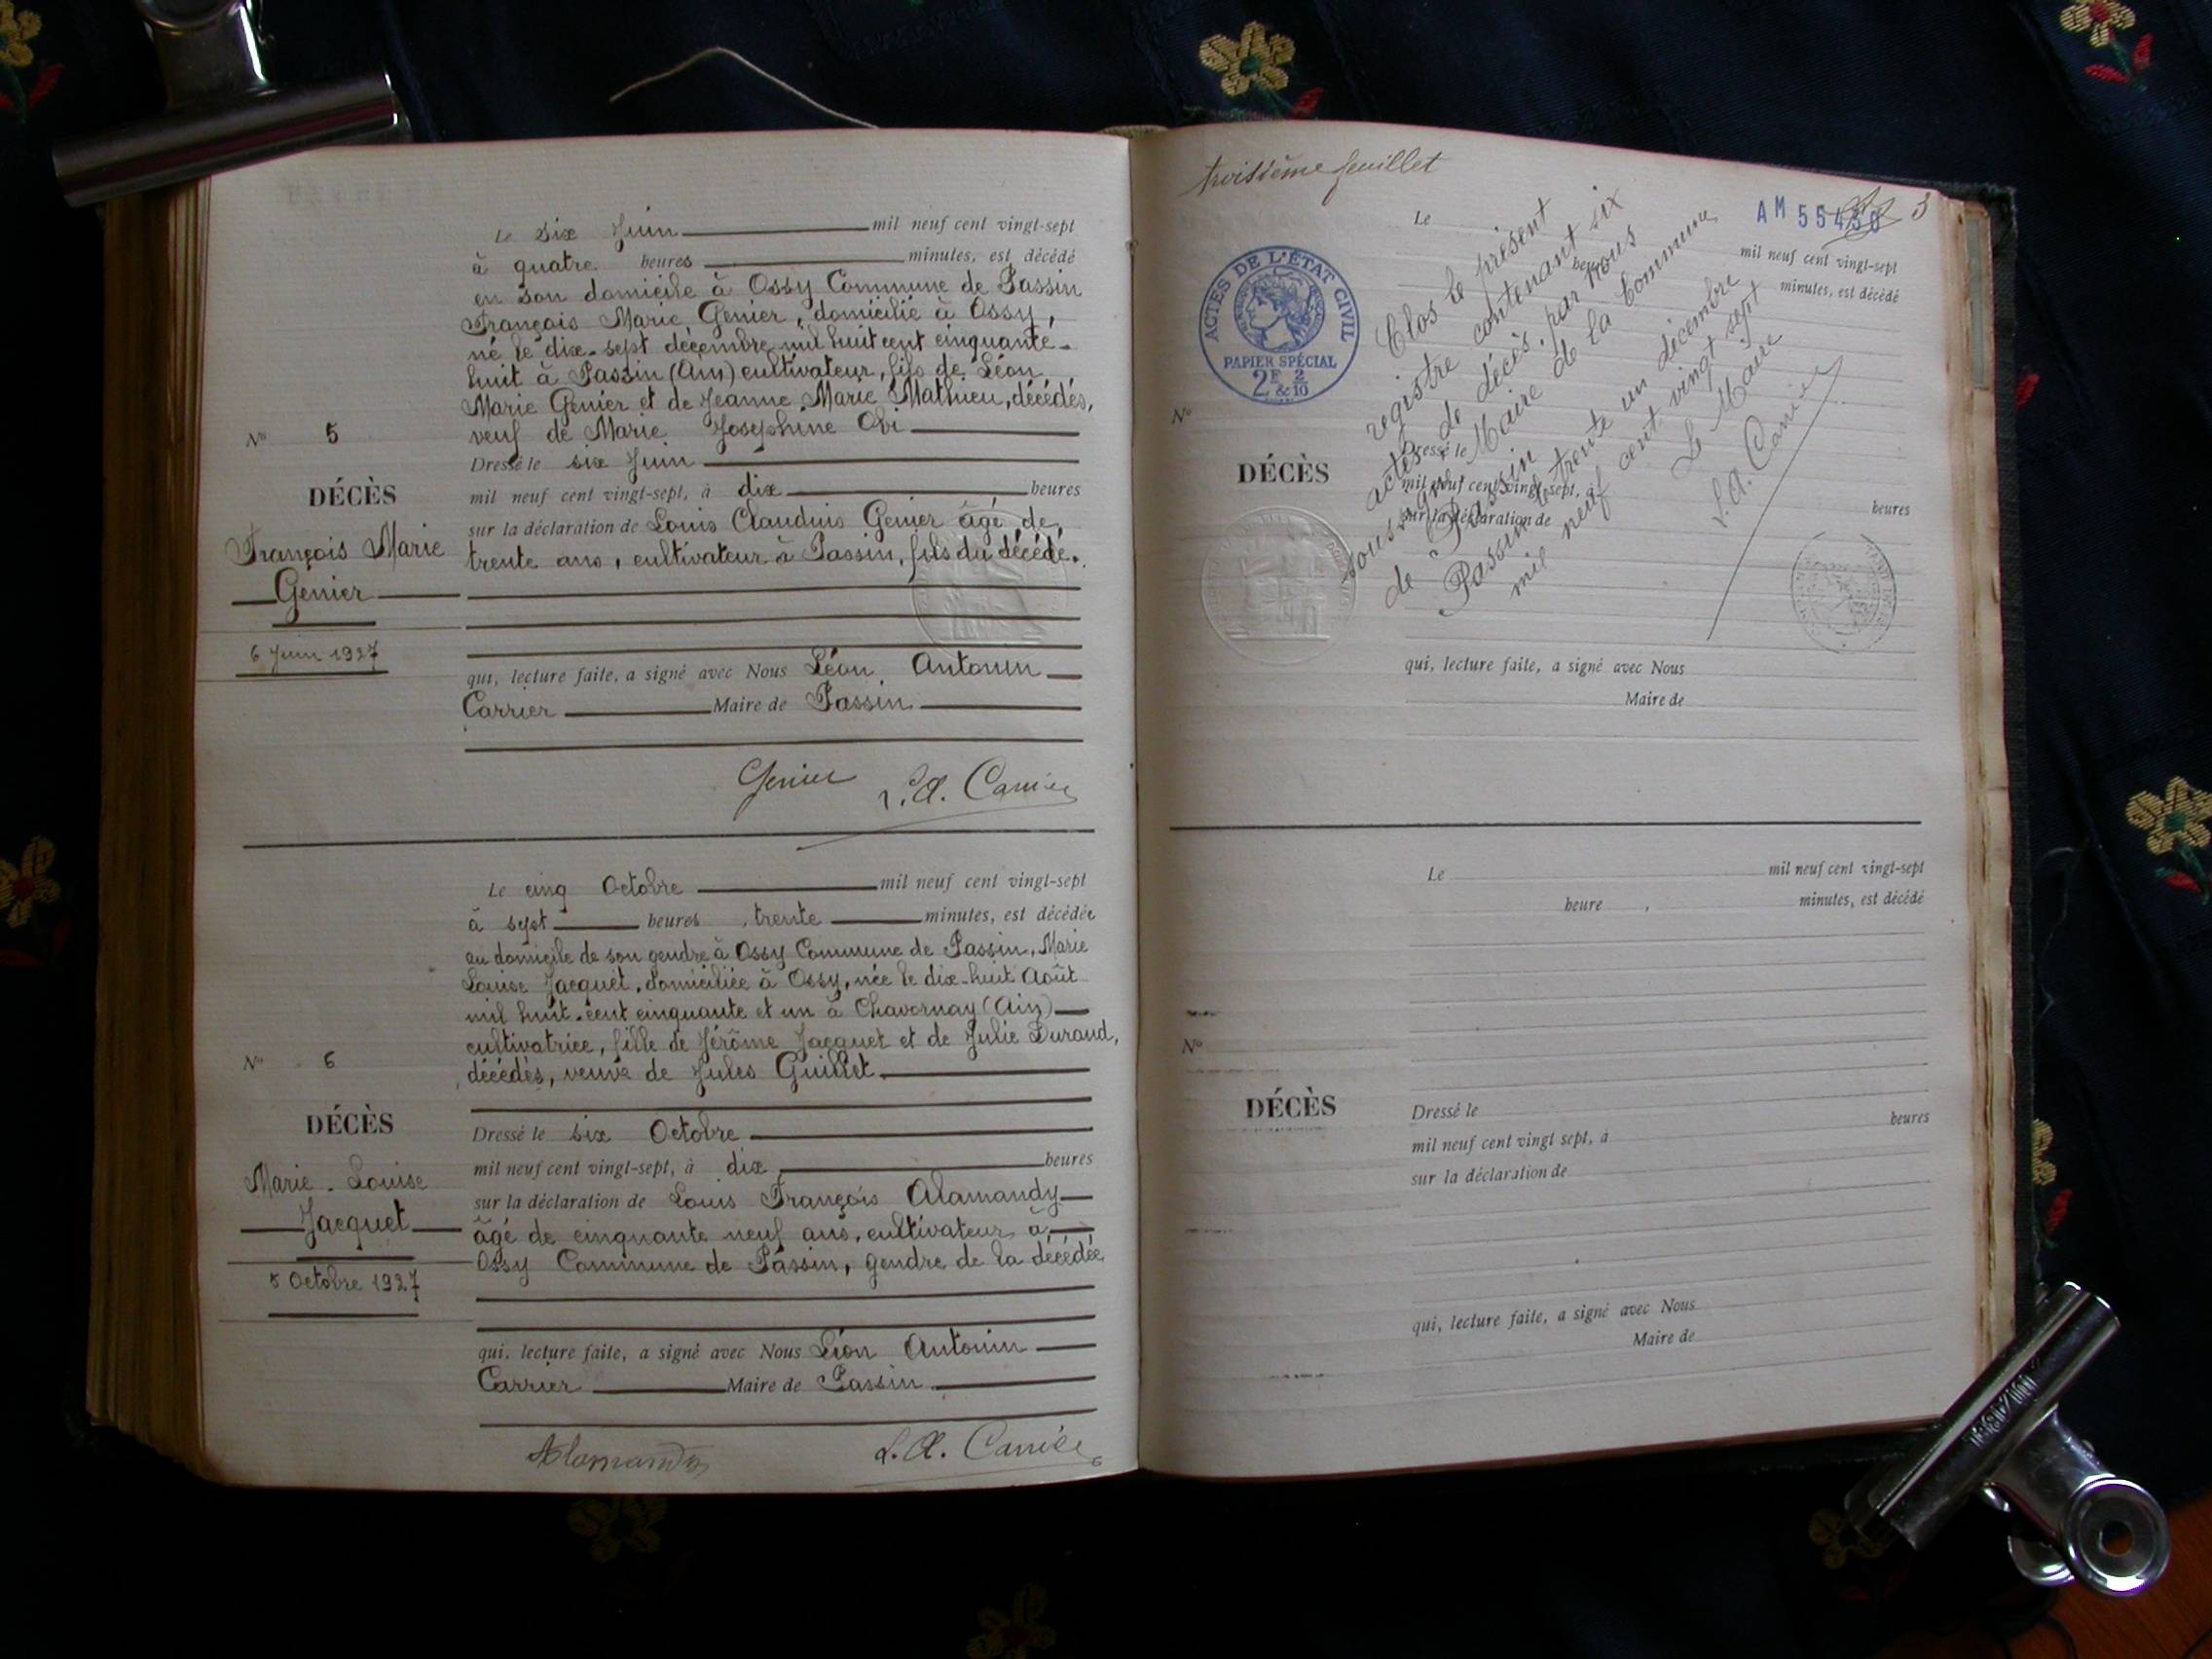 Le six Juin mil neuf cent vingt-sept
à quatre heures minutes, est décédé
en son domicile à Ossy Commune de Passin
François Marie Genier, domicilié à Ossy,
né le dix-sept décembre mil huit cent cinquante-
huit à Passin (Ain) cultivateur, fils de Léon
Marie Genier et de Jeanne Marie Mathieu, décédés,
veuf de Marie Josephine Obi
Nº 5
DÉCÈS
François Marie
Genier
6 Juin 1927
Dressé le six Juin
mil neuf cent vingt-sept, à dix heures
sur la déclaration de Louis Claudius Genier âgé de
trente ans, cultivateur à Passin, fils du décédé.
qui, lecture faite, a signé avec Nous Léon Antonin
Carrier Maire de Passin
Genier L.A. Carrier
Le cinq Octobre mil neuf cent vingt-sept
à sept heures, trente minutes, est décédée
au domicile de son gendre à Ossy Commune de Passin, Marie
Louise Jacquet, domiciliée à Ossy, née le dix-huit Août
mil huit-cent cinquante et un à Chavornay (Ain)
cultivatrice, fille de Jérôme Jacquet et de Julie Durand,
décédés, veuve de Jules Guillet
Nº 6
DÉCÈS
Marie-Louise
Jacquet
5 Octobre 1927
Dressé le six Octobre
mil neuf cent vingt-sept, à dix heures
sur la déclaration de Louis François Alamandy
âgé de cinquante neuf ans, cultivateur à
Ossy Commune de Passin, gendre de la décédée
qui, lecture faite, a signé avec Nous Léon Antonin
Carrier Maire de Passin
Alamandy L.A. Carrier
troisième feuillet
AM 55430 3
ACTES DE L'ÉTAT CIVIL
PAPIER SPÉCIAL
2F & 2/10
Clos le présent
registre contenant six
actes de décès, par nous
soussigné, Maire de la Commune
de Passin
Passin le trente un décembre
mil neuf cent vingt sept
Le Maire
L.A. Carrier
Le mil neuf cent vingt-sept
heure minutes, est décédé
Nº
DÉCÈS
Dressé le
mil neuf cent vingt-sept, à heures
sur la déclaration de
qui, lecture faite, a signé avec Nous
Maire de
Le mil neuf cent vingt-sept
heure , minutes, est décédé
Nº
DÉCÈS
Dressé le
mil neuf cent vingt sept, à heures
sur la déclaration de
qui, lecture faite, a signé avec Nous
Maire de